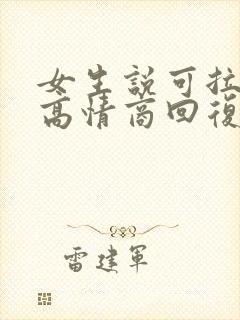 女生説可拉
高情商回復
雷建軍